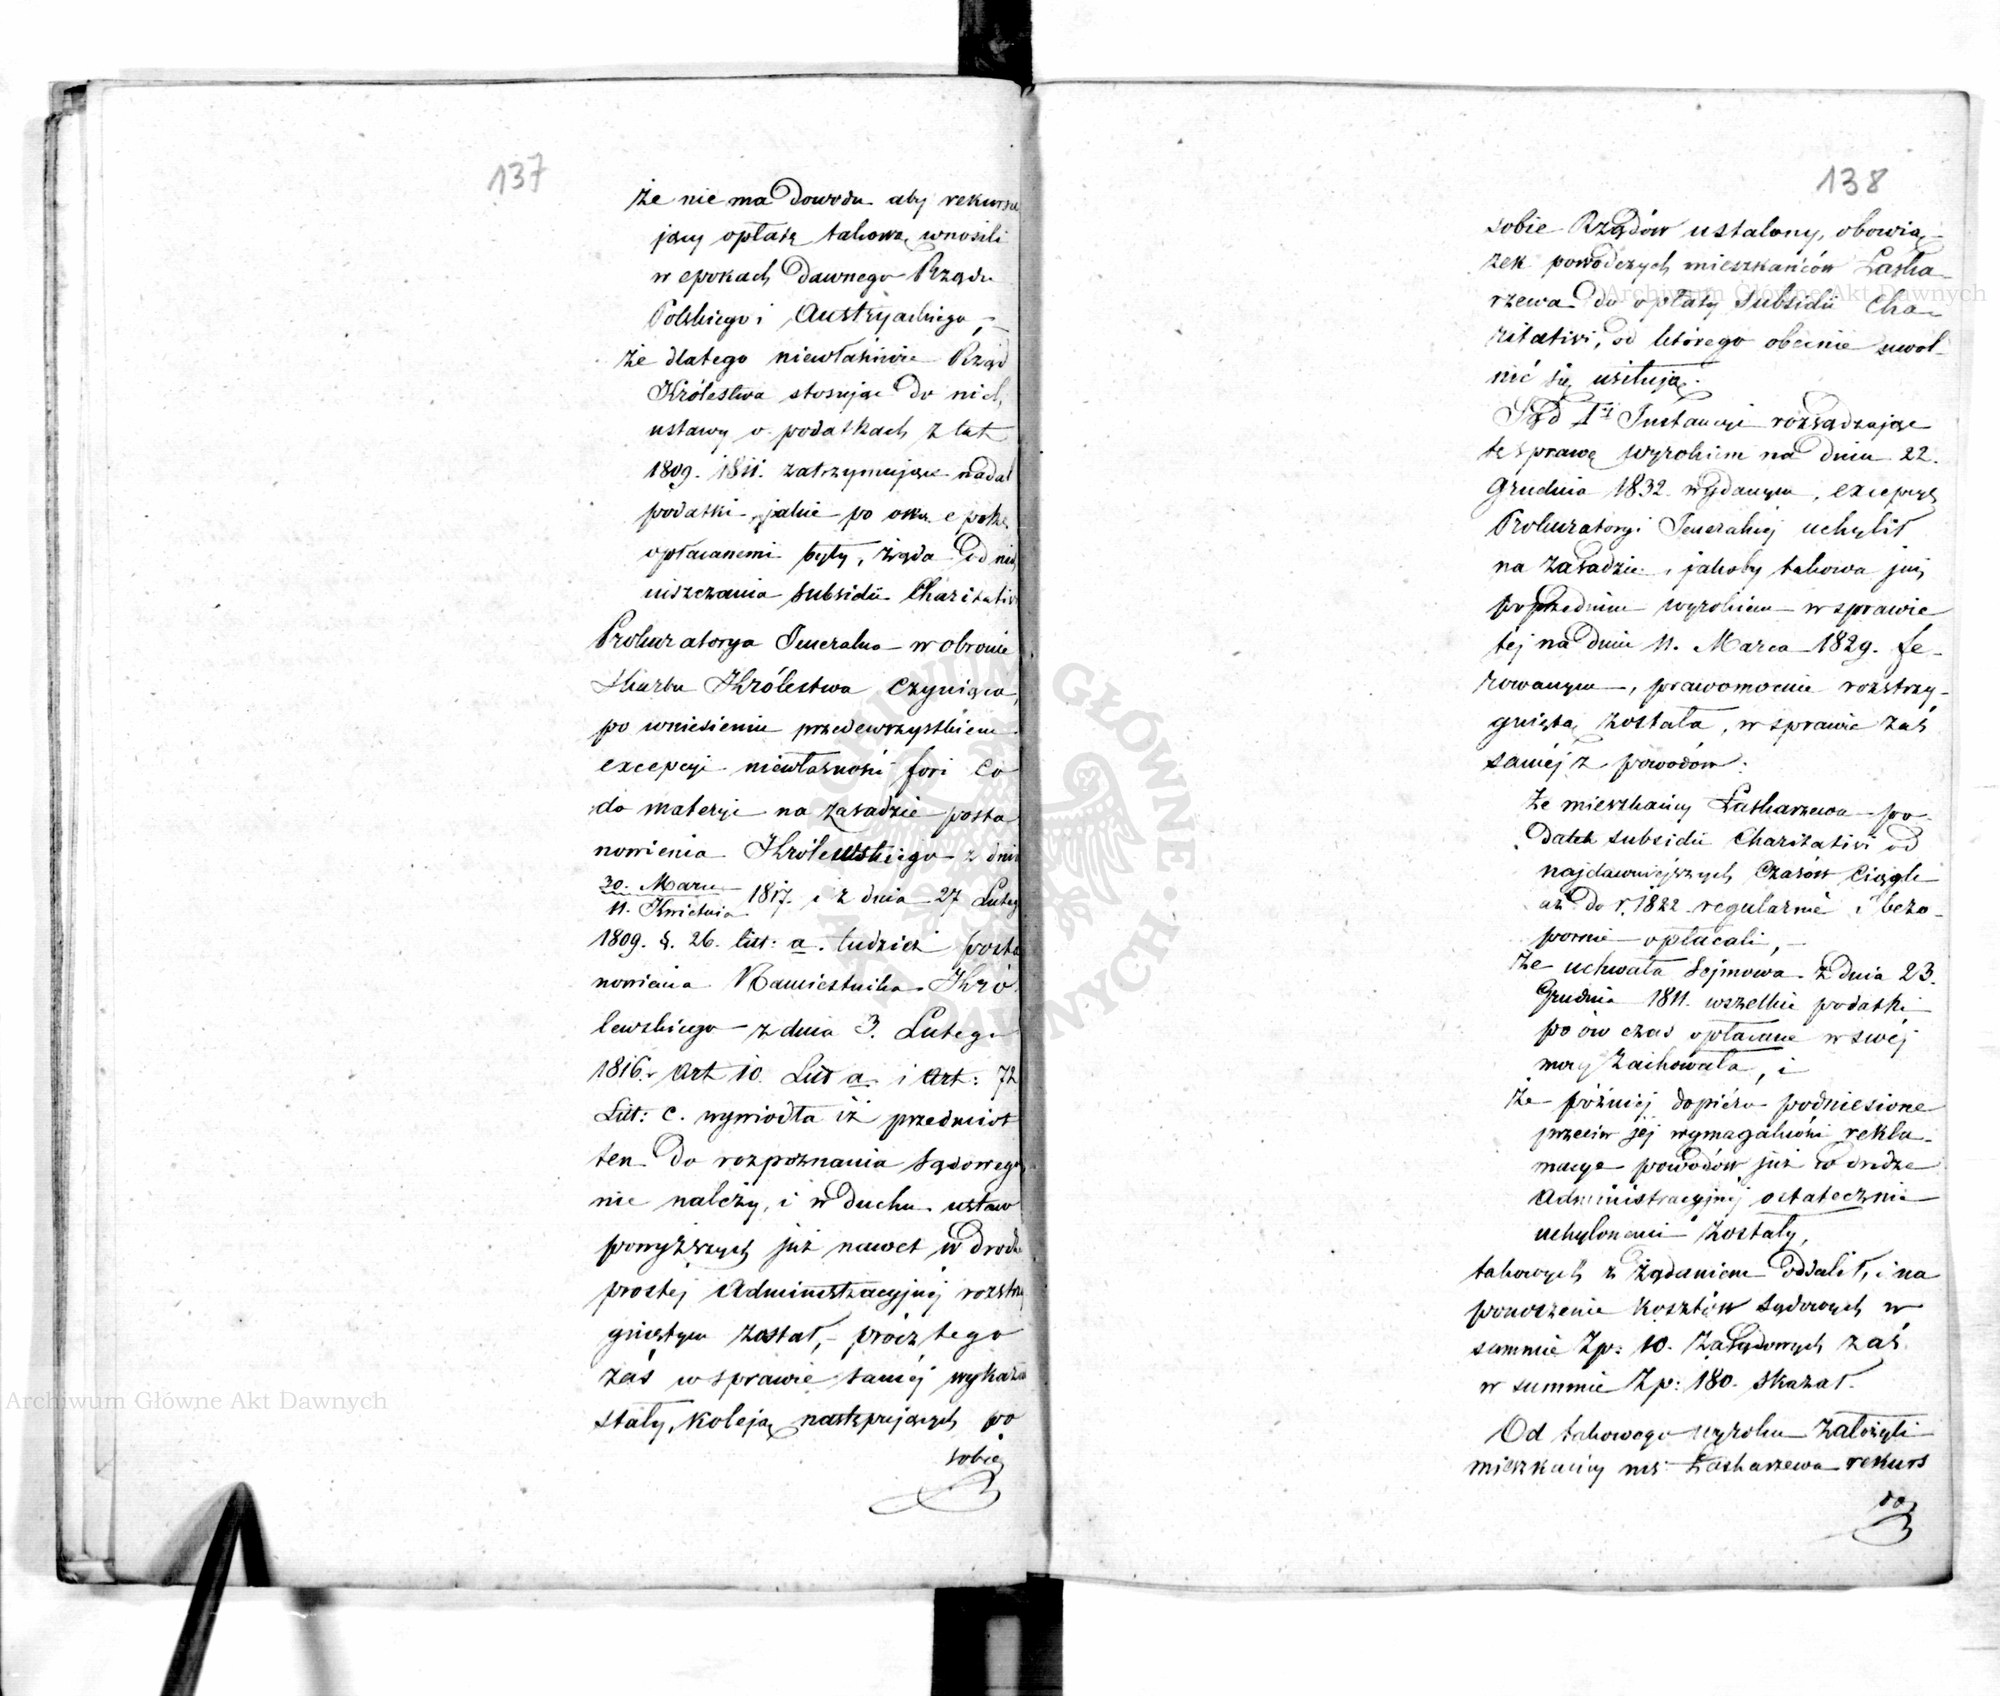 137
że nie ma dowodu aby rekursu
jący opłatę takową wnosili
w epokach dawnego Rządu
Polskiego i Austryackiego, –
że dlatego niewłaśnie Rząd
Królestwa stosując do nich
ustawy o podatkach z lat
1809. 1811. zatrzymujące nadal
podatki, jakie po ową epokę
opłacanemi były, żąda od nich
uiszczania subsidii Charitativi
Prokuratorya Jeneralna w obronie
Skarbu Królestwa czyniąca,
po wniesieniu przedewszystkiem
excepcyi niewłasności fori co
do materyi na zasadzie posta
nowienia Królewskiego z dnia
30. Marca
11. Kwietnia 1817. i z dnia 27 Lutego
1809. §. 26. litt: a. tudzież posta
nowienia Namiestnika Kró
lewskiego z dnia 3. Lutego
1816. Art 10. Litt a. i Art: 72
Litt: c. wywiodła iż przedmiot
ten do rozpoznania Sądowego
nie należy, i w duchu ustaw
powyższych już nawet w drodze
prostej Administracyjnéj rozstrzy
gniętym został, – prócz tego
zaś w sprawie saméj wykaza
stały, koleją następujących po
sobie
138
sobie Rządów ustalony, obowią–
zek powodczych mieszkańców Łaska–
rzewa do opłaty Subsidii Cha–
ritativi, od którego obecnie uwol–
nić się usiłują.
Sąd I<sup>éj</sup> Instancyi rozsądzając
tę sprawę wyrokiem na dniu 22.
Grudnia 1832 wydanym, excepcyę
Prokuratoryi Jeneralnéj uchylił
na zasadzie, jakoby takowa już
poprzednim wyrokiem w sprawie
téj na dniu 11. Marca 1829. fe–
rowanym, prawomocnie rozstrzy–
gniętą została, w sprawie zaś
saméj z powodów:
że mieszkańcy Łaskarzewa po–
datek subsidii Charitativi od
najdawniejszych czasów ciągle
aż do r. 1822 regularnie i bezo–
pornie opłacali, –
że uchwała Sejmowa z dnia 23.
Grudnia 1811. wszelkie podatki
po ów czas opłacane w swéj
mocy zachowała, i
że późniéj dopiéro podniesione
przeciw jéj wymagalności rekla–
macye powodów już w drodze
Administracyjnéj ostatecznie
uchylonemi zostały,
takowych z żądaniem oddalił, i na
ponoszenie kosztów Sądowych w
summie Zp: 10. Zasądowych zaś
w summie Zp: 180. skazał.
Od takowego wyroku założyli
mieszkańcy ms: Łaskarzewa rekurs
do
Archiwum Główne Akt Dawnych
Archiwum Główne Akt Dawnych
ARCHIWUM GŁÓWNE AKT DAWNYCH